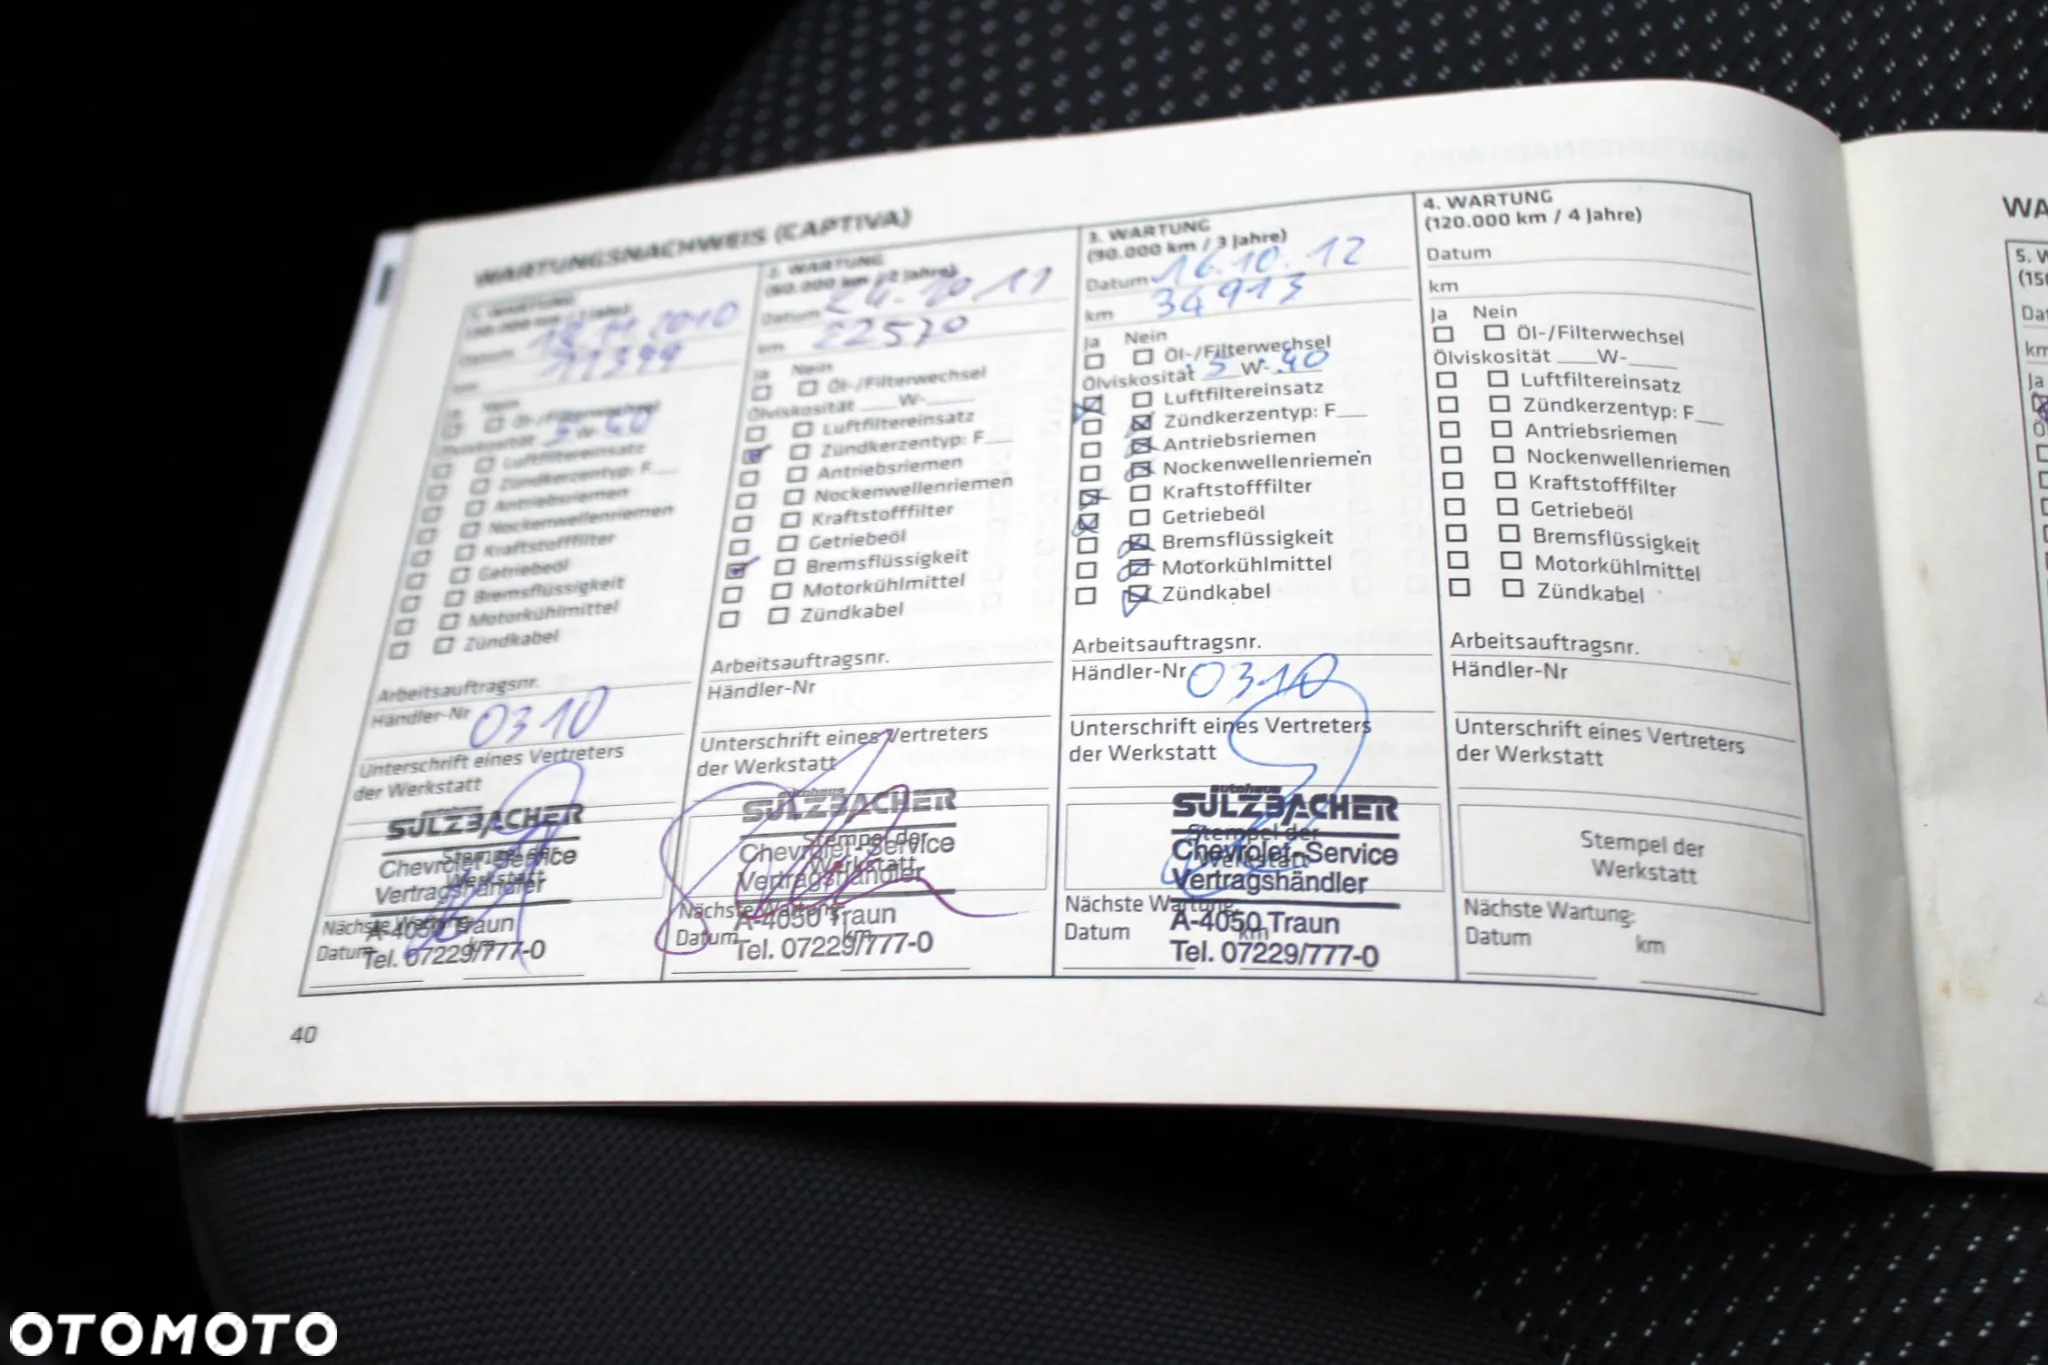 WARTUNGSNACHWEIS (CAPTIVA)
1. WARTUNG
Datum 18.11.2010
km 11399
Ja Nein
Öl-/Filterwechsel
Ölviskosität 5 W-40
Luftfiltereinsatz
Zündkerzentyp: F__
Antriebsriemen
Nockenwellenriemen
Kraftstofffilter
Getriebeöl
Bremsflüssigkeit
Motorkühlmittel
Zündkabel
Arbeitsauftragsnr.
Händler-Nr 0310
Unterschrift eines Vertreters
der Werkstatt
autohaus
SULZBACHER
Stempel der
Werkstatt
Chevrolet-Service
Vertragshändler
A-4050 Traun
Tel. 07229/777-0
Nächste Wartung:
Datum km
2. WARTUNG
(60.000 km / 2 Jahre)
Datum 24.10.11
km 22570
Ja Nein
Öl-/Filterwechsel
Ölviskosität ___W-___
Luftfiltereinsatz
Zündkerzentyp: F__
Antriebsriemen
Nockenwellenriemen
Kraftstofffilter
Getriebeöl
Bremsflüssigkeit
Motorkühlmittel
Zündkabel
Arbeitsauftragsnr.
Händler-Nr
Unterschrift eines Vertreters
der Werkstatt
autohaus
SULZBACHER
Stempel der
Werkstatt
Chevrolet-Service
Vertragshändler
A-4050 Traun
Tel. 07229/777-0
Nächste Wartung:
Datum km
3. WARTUNG
(90.000 km / 3 Jahre)
Datum 16.10.12
km 34913
Ja Nein
Öl-/Filterwechsel
Ölviskosität 5 W-40
Luftfiltereinsatz
Zündkerzentyp: F__
Antriebsriemen
Nockenwellenriemen
Kraftstofffilter
Getriebeöl
Bremsflüssigkeit
Motorkühlmittel
Zündkabel
Arbeitsauftragsnr.
Händler-Nr 0310
Unterschrift eines Vertreters
der Werkstatt
autohaus
SULZBACHER
Stempel der
Werkstatt
Chevrolet-Service
Vertragshändler
A-4050 Traun
Tel. 07229/777-0
Nächste Wartung:
Datum km
4. WARTUNG
(120.000 km / 4 Jahre)
Datum
km
Ja Nein
Öl-/Filterwechsel
Ölviskosität ___W-___
Luftfiltereinsatz
Zündkerzentyp: F__
Antriebsriemen
Nockenwellenriemen
Kraftstofffilter
Getriebeöl
Bremsflüssigkeit
Motorkühlmittel
Zündkabel
Arbeitsauftragsnr.
Händler-Nr
Unterschrift eines Vertreters
der Werkstatt
Stempel der
Werkstatt
Nächste Wartung:
Datum km
40
WA
5. W
(15
Da
km
Ja
OTOMOTO